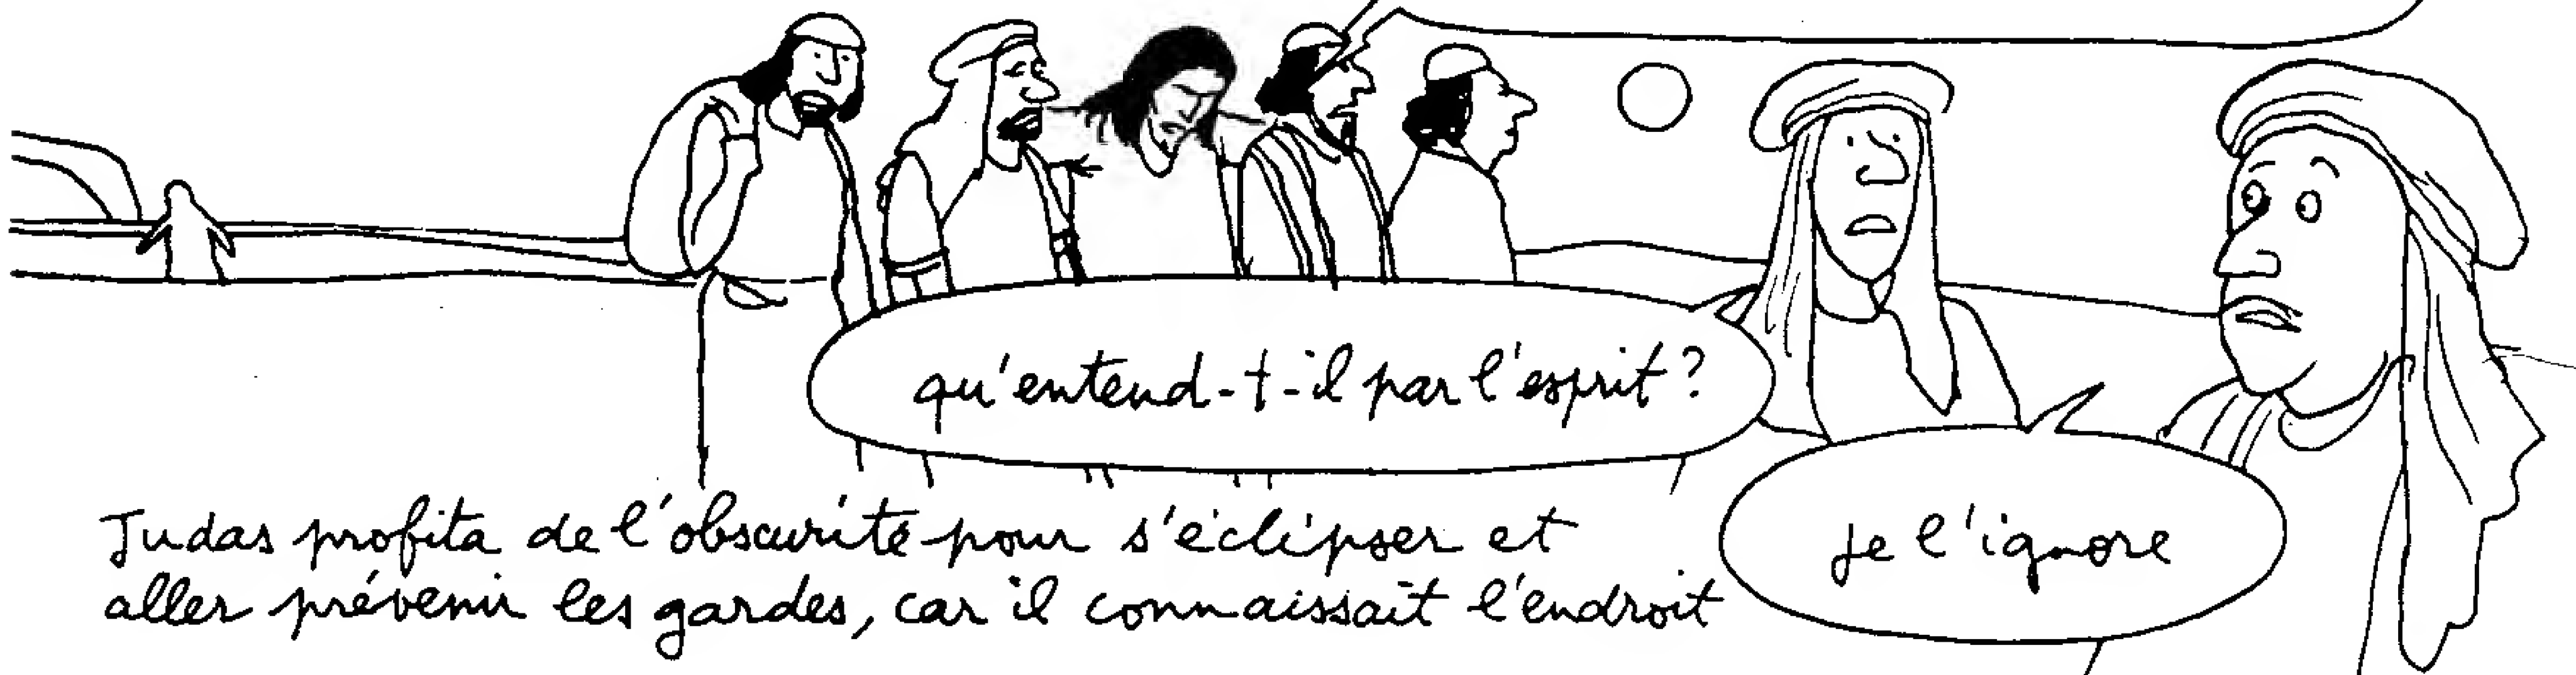 qu'entend-t-il par l'esprit?
je l'ignore
Judas profita de l'obscurité pour s'éclipser et
aller prévenir les gardes, car il connaissait l'endroit